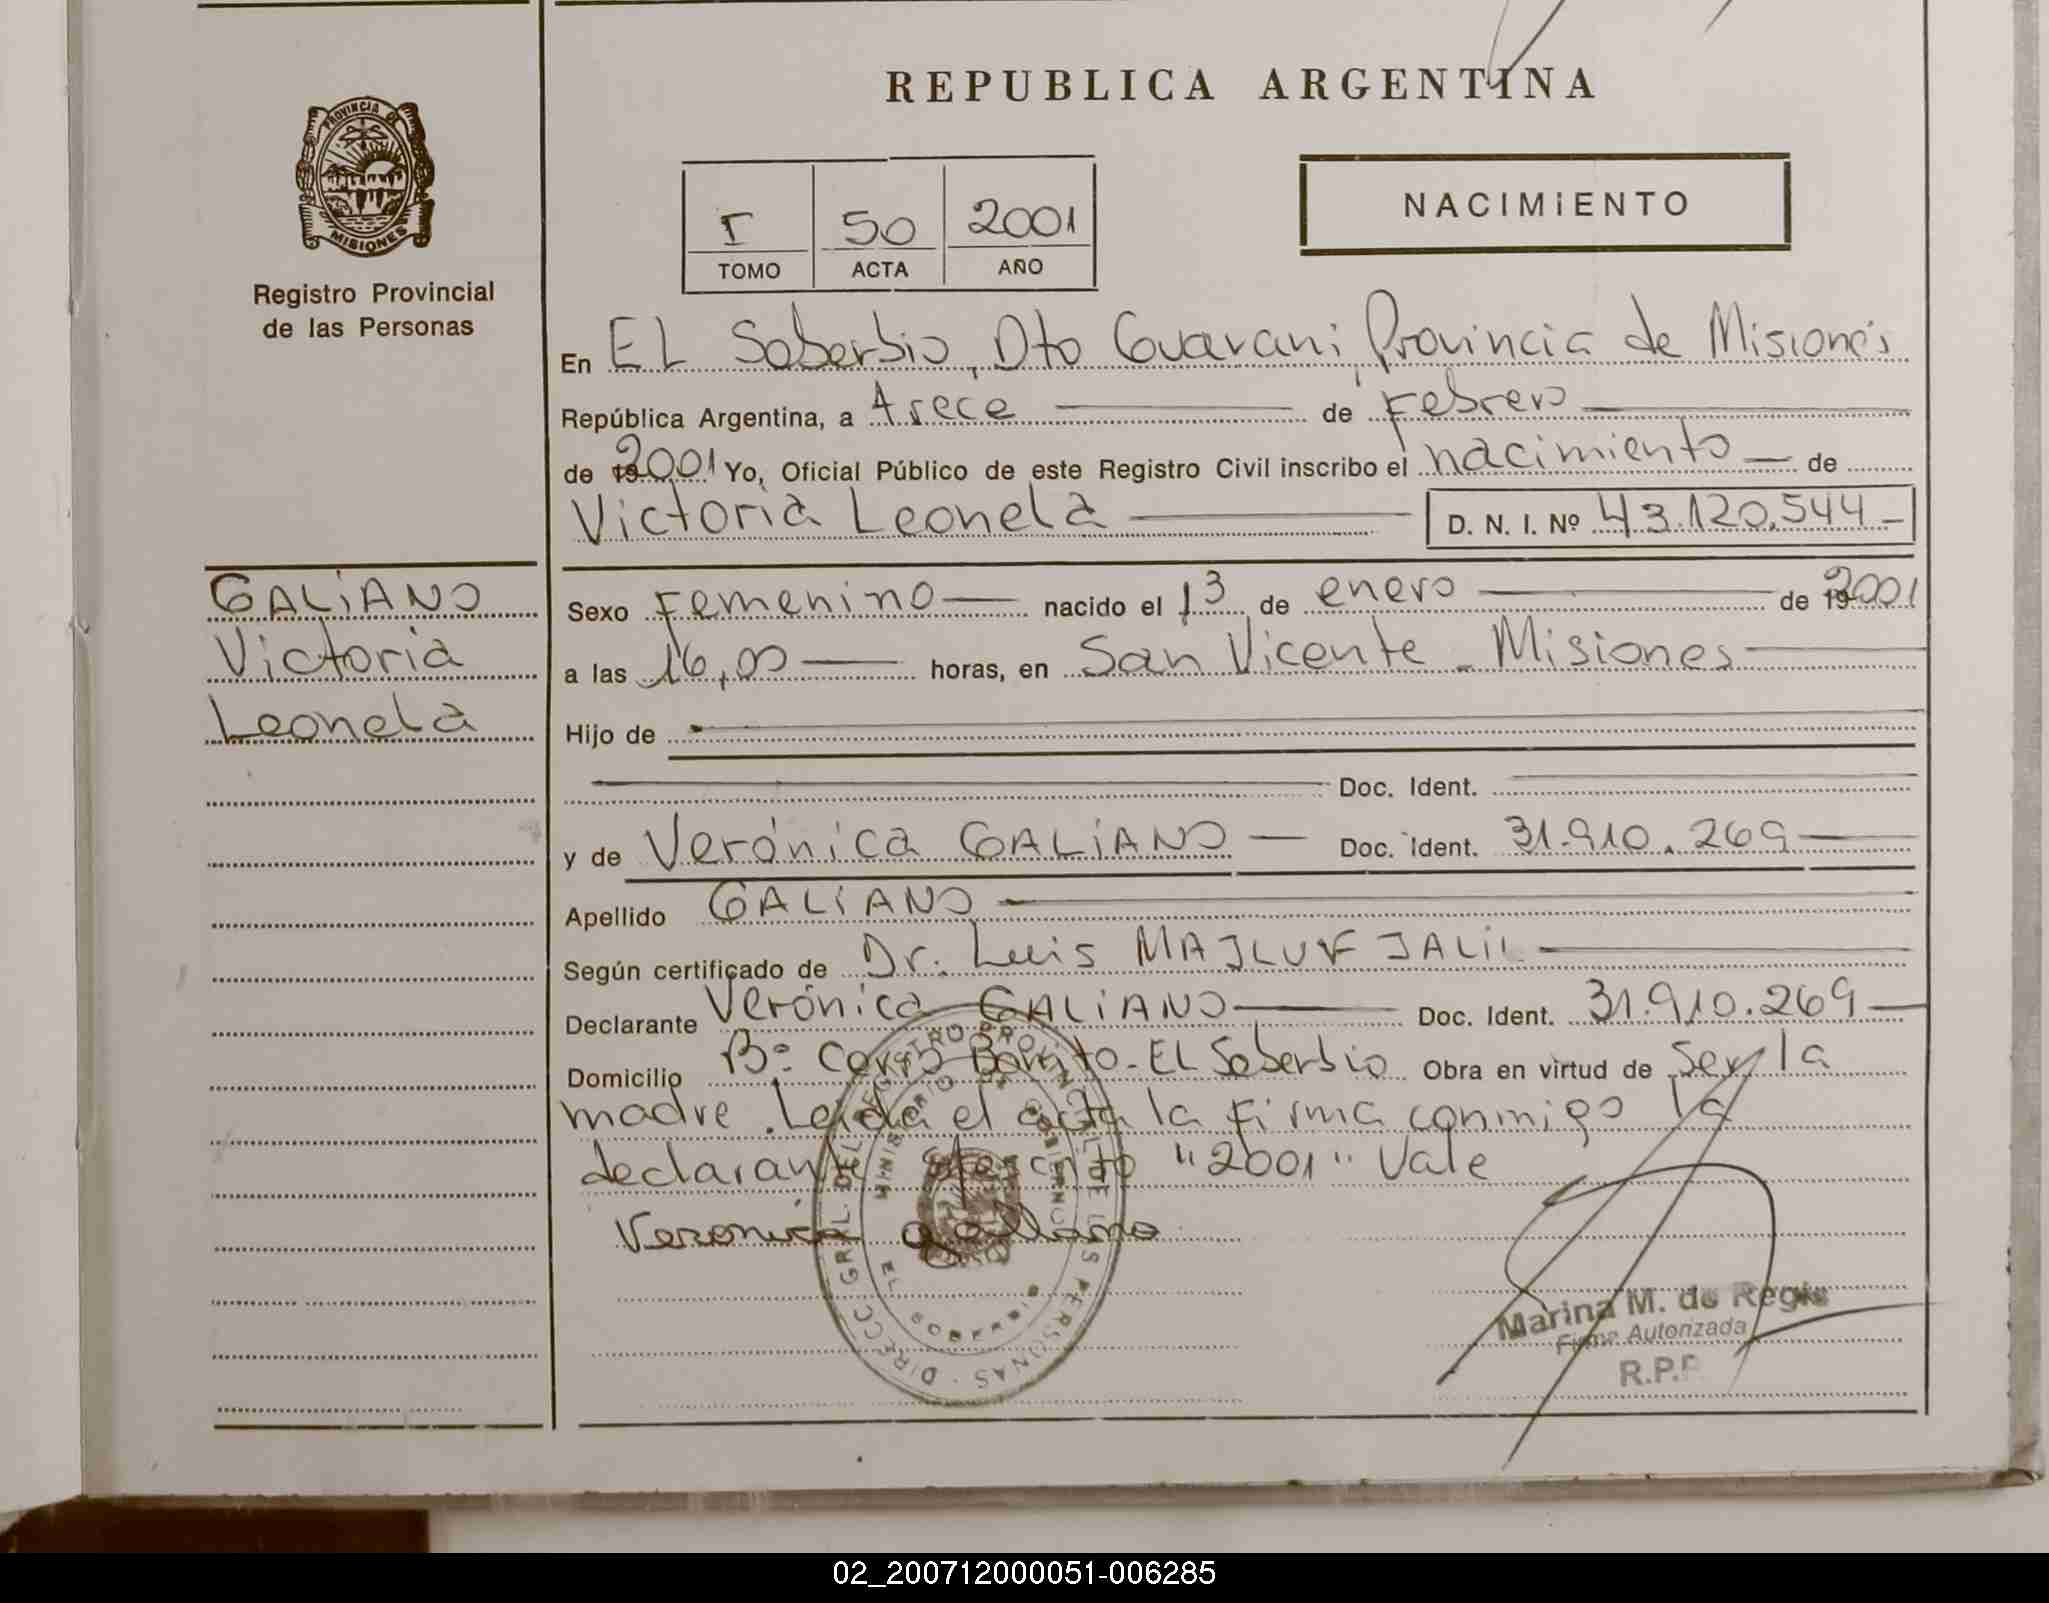 REPUBLICA ARGENTINA
PROVINCIA DE
MISIONES
Registro Provincial
de las Personas
I 50 2001
TOMO ACTA AÑO
NACIMIENTO
En EL Soberbio, Dto Guarani, Provincia de Misiones
República Argentina, a trece de Febrero
de 19 2001 Yo, Oficial Público de este Registro Civil inscribo el nacimiento de
Victoria Leonela D. N. I. Nº 43.120.544
GALiANO
Victoria
Leonela
Sexo Femenino nacido el 13 de enero de 19 2001
a las 16,00 horas, en San Vicente - Misiones
Hijo de
Doc. Ident.
y de Verónica GALiANO Doc. Ident. 31.910.269
Apellido GALiANO
Según certificado de Dr. Luis MAJLUF JALiL
Declarante Verónica GALiANO Doc. Ident. 31.910.269
Domicilio Bº Cerro Bonito - EL Soberbio Obra en virtud de Ser la
madre. Leida el acta la firma conmigo la
declarante "2001" Vale
Veronica galiano
DIRECC. GRAL. DEL REGISTRO PROVINCIAL DE LAS PERSONAS
MINISTERIO DE GOBIERNO
EL SOBERBIO
Marina M. de Regis
Firma Autorizada
R.P.P.
02_200712000051-006285